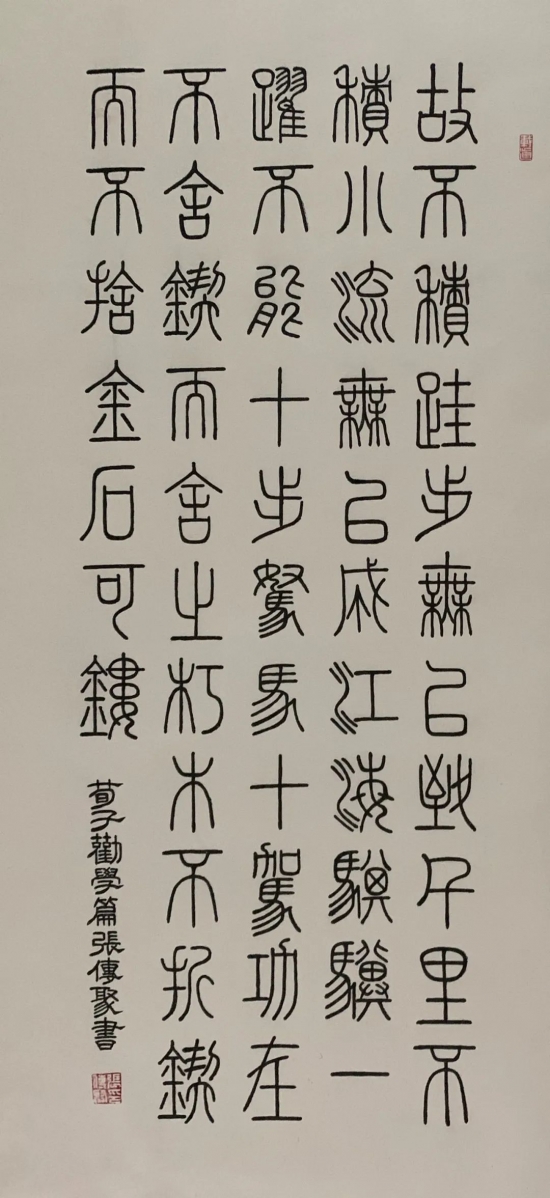 故不積跬步無以致千里不
積小流無以成江海騏驥一
躍不能十步駑馬十駕功在
不舍鍥而舍之朽木不折鍥
而不捨金石可鏤
荀子勸學篇張傳聚書